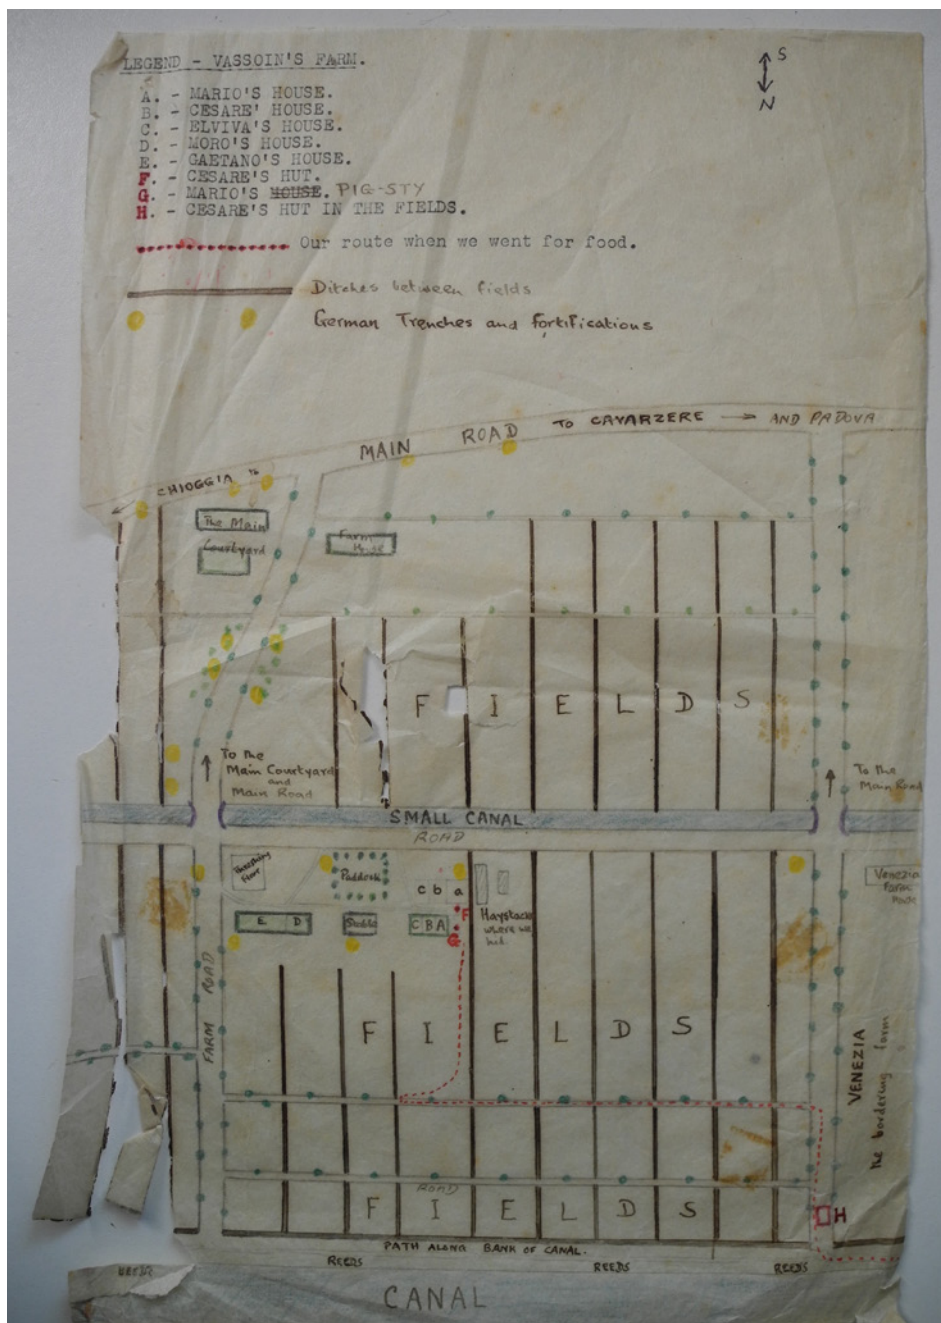 LEGEND - VASSOIN'S FARM.
S
N
A. - MARIO'S HOUSE.
B. - CESARE' HOUSE.
C. - ELVIVA'S HOUSE.
D. - MORO'S HOUSE.
E. - GAETANO'S HOUSE.
F. - CESARE'S HUT.
G. - MARIO'S HOUSE. PIG-STY
H. - CESARE'S HUT IN THE FIELDS.
Our route when we went for food.
Ditches between fields
German Trenches and fortifications
MAIN ROAD TO CAVARZERE → AND PADOVA
CHIOGGIA
The Main
Courtyard
Farm
House
F I E L D S
To the
Main Courtyard
and
Main Road
To the
Main Road
SMALL CANAL
ROAD
Threshing
Floor
Paddock
c b a
Venezia
Farm
House
E D
Stable
C B A
F
G
Haystack
where we
hid
FARM ROAD
F I E L D S
VENEZIA
the bordering farm
ROAD
F I E L D S
H
PATH ALONG BANK OF CANAL.
REEDS
REEDS
REEDS
REEDS
CANAL